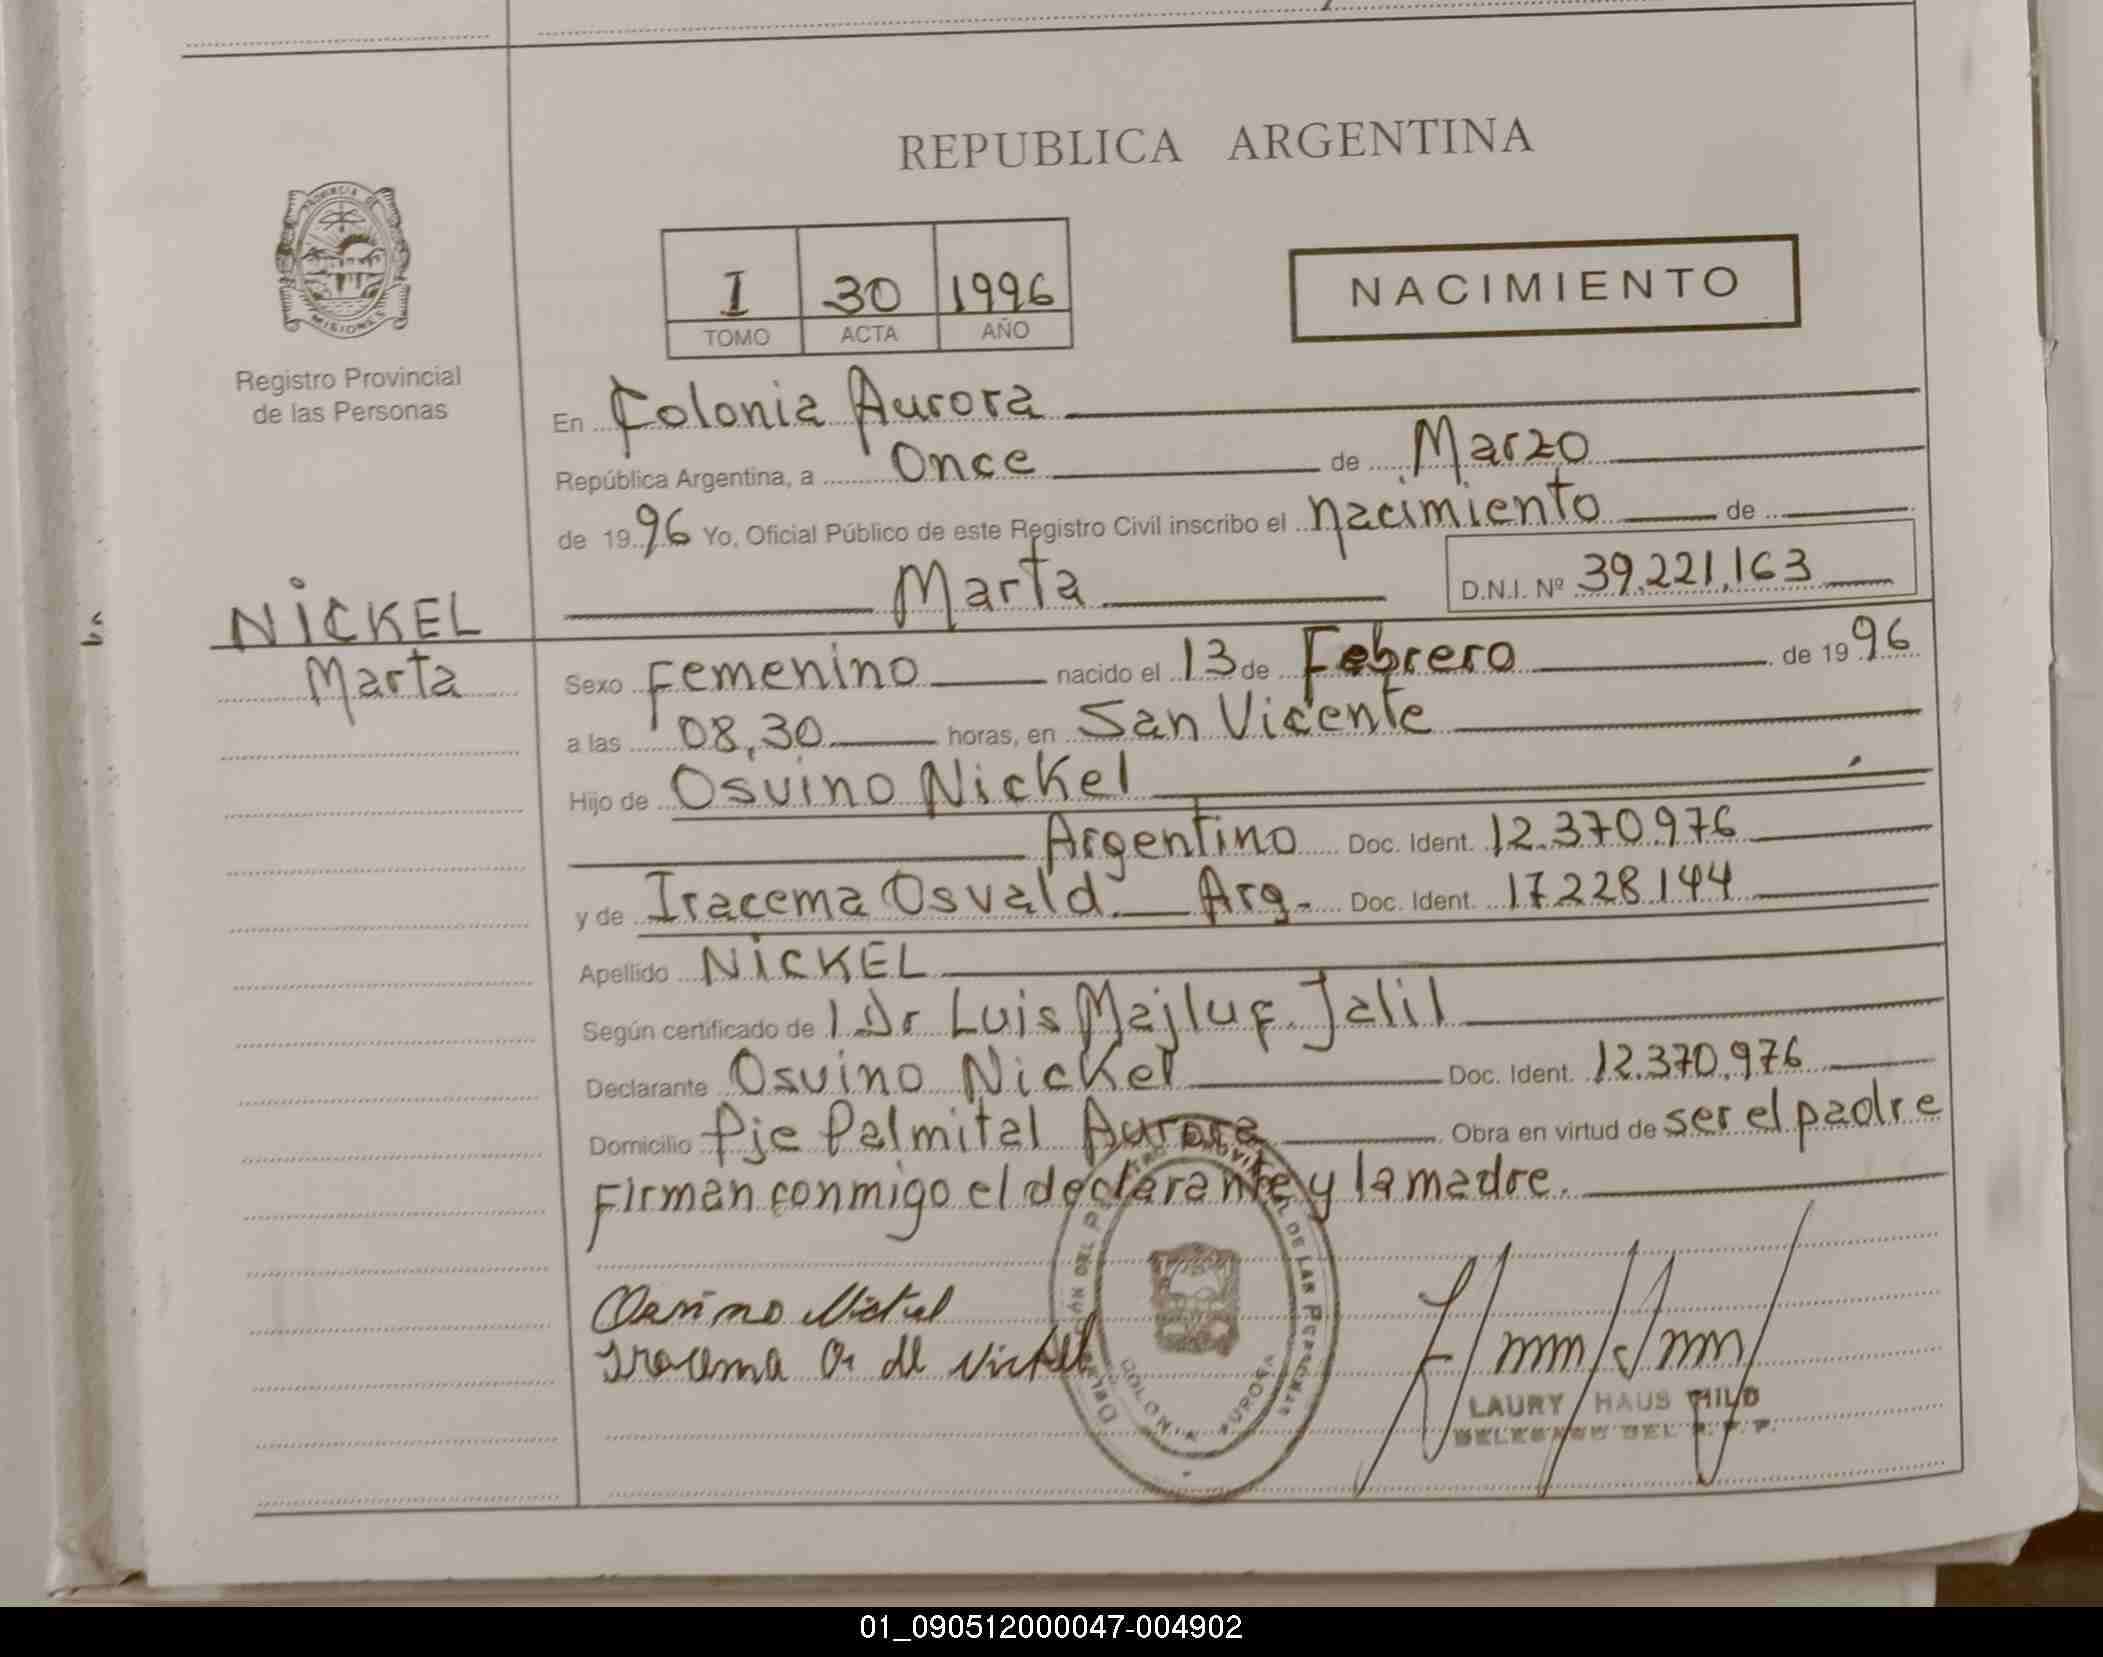 REPUBLICA ARGENTINA
PROVINCIA DE MISIONES
Registro Provincial
de las Personas
I 30 1996
TOMO ACTA AÑO
NACIMIENTO
En Colonia Aurora
República Argentina, a Once de Marzo
de 1996 Yo, Oficial Público de este Registro Civil inscribo el nacimiento de
Marta D.N.I. Nº 39.221.163
NICKEL
Marta
Sexo Femenino nacido el 13 de Febrero de 1996
a las 08,30 horas, en San Vicente
Hijo de Osvino Nickel
Argentino Doc. Ident. 12.370.976
y de Iracema Osvald. Arg. Doc. Ident. 17.228.144
Apellido NICKEL
Según certificado de l Dr Luis Majluf. Jalil
Declarante Osvino Nickel Doc. Ident. 12.370.976
Domicilio Pje Palmital Aurora Obra en virtud de ser el padre
Firman conmigo el declarante y la madre.
Osvino Nickel
Iracema O. de Nickel
COLONIA AURORA
LAURY HAUS HILD
DELEGADO DEL R.P.P.
01_090512000047-004902